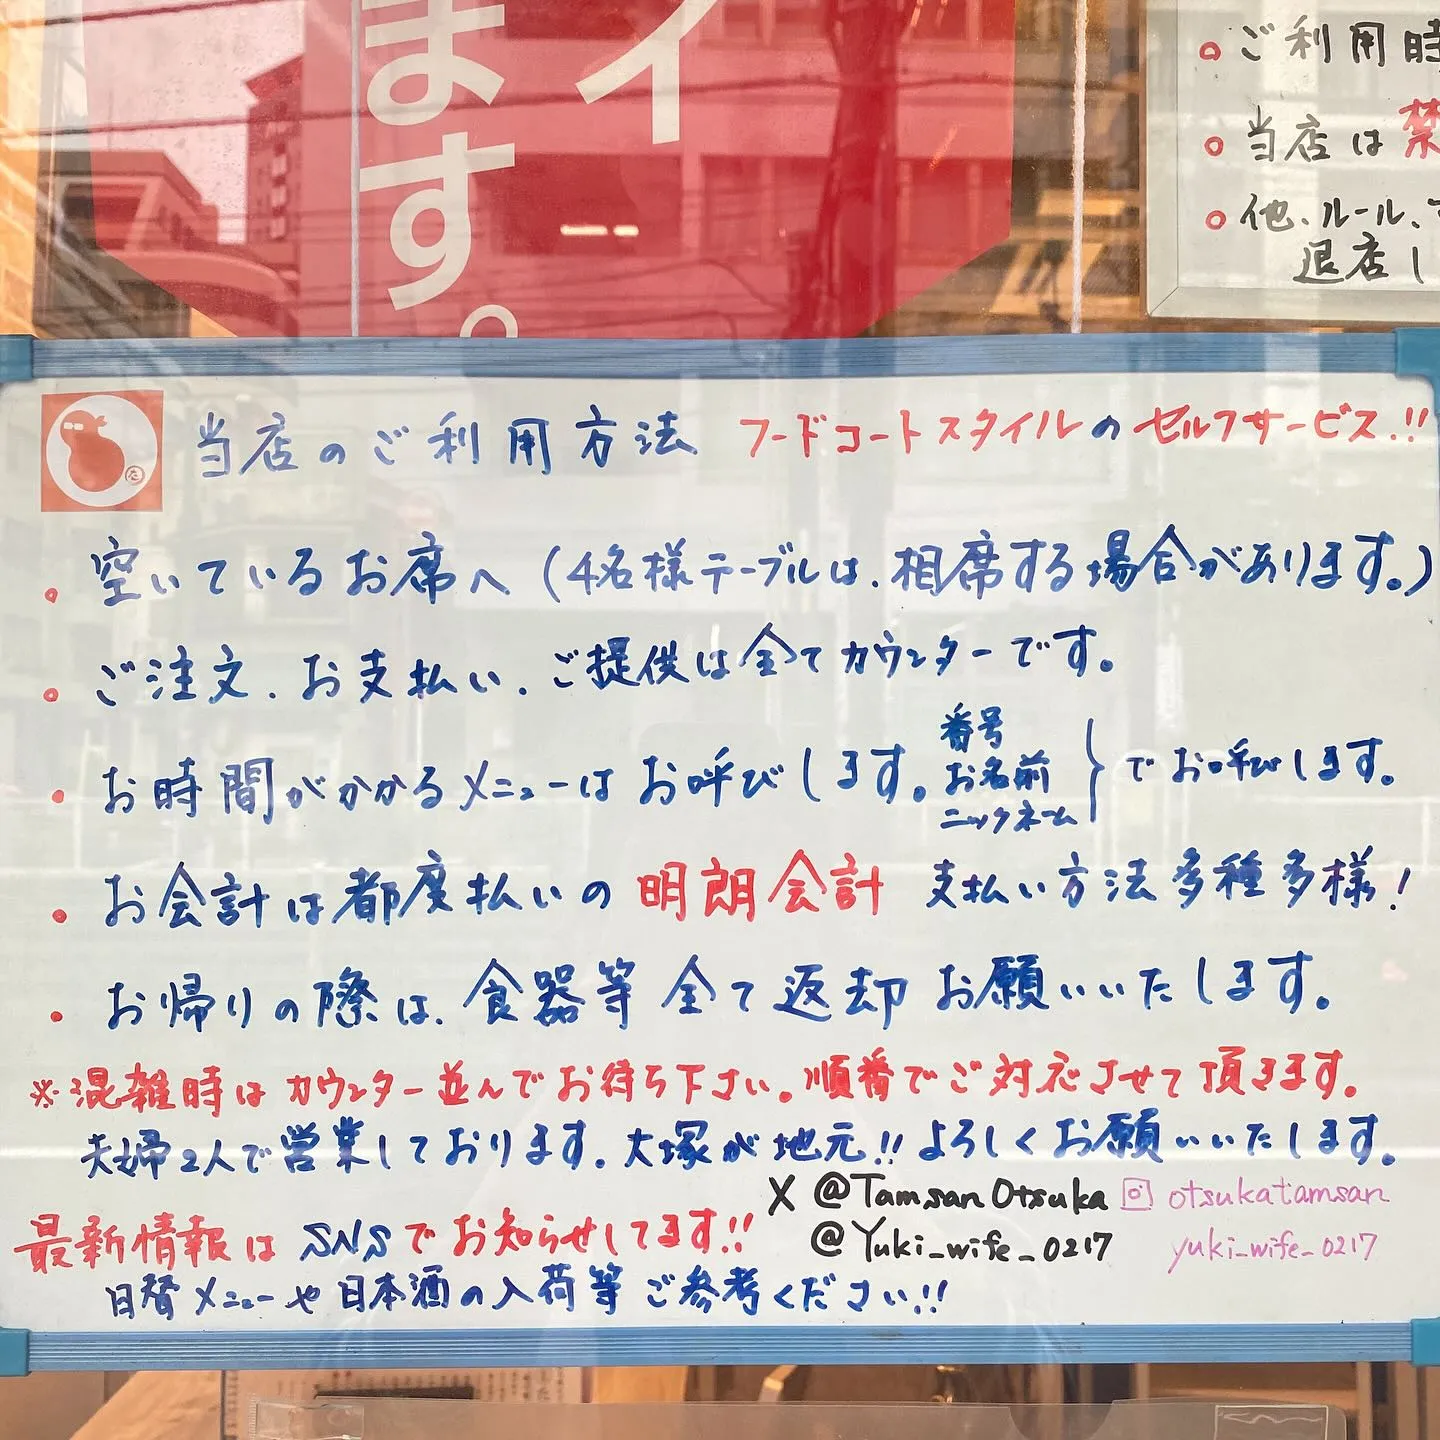 イ
ます。
○ご利用時
○当店は禁
○他、ルール、
退店し
当店のご利用方法 フードコートスタイルのセルフサービス!!
・空いているお席へ(4名様テーブルは、相席する場合があります。)
・ご注文、お支払い、ご提供は全てカウンターです。
・お時間がかかるメニューはお呼びします。番号 お名前 ニックネーム}でお呼びします。
・お会計は都度払いの明朗会計 支払い方法多種多様!
・お帰りの際は、食器等全て返却お願いいたします。
※混雑時はカウンター並んでお待ち下さい。順番でご対応させて頂きます。
夫婦2人で営業しております。大塚が地元!!よろしくお願いいたします。
X @TamsanOtsuka otsukatamsan
最新情報はSNSでお知らせしてます!! @Yuki_wife_0217 yuki_wife_0217
日替メニューや日本酒の入荷等ご参考ください!!